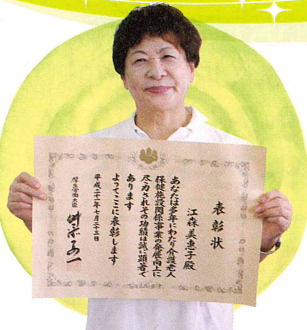 表彰状
江森美恵子殿
あなたは多年にわたり介護老人
保健施設関係事業の発展向上に
尽力されその功績は誠に顕著で
あります
よってここに表彰します
平成二十一年七月二十三日
厚生労働大臣
舛添要一